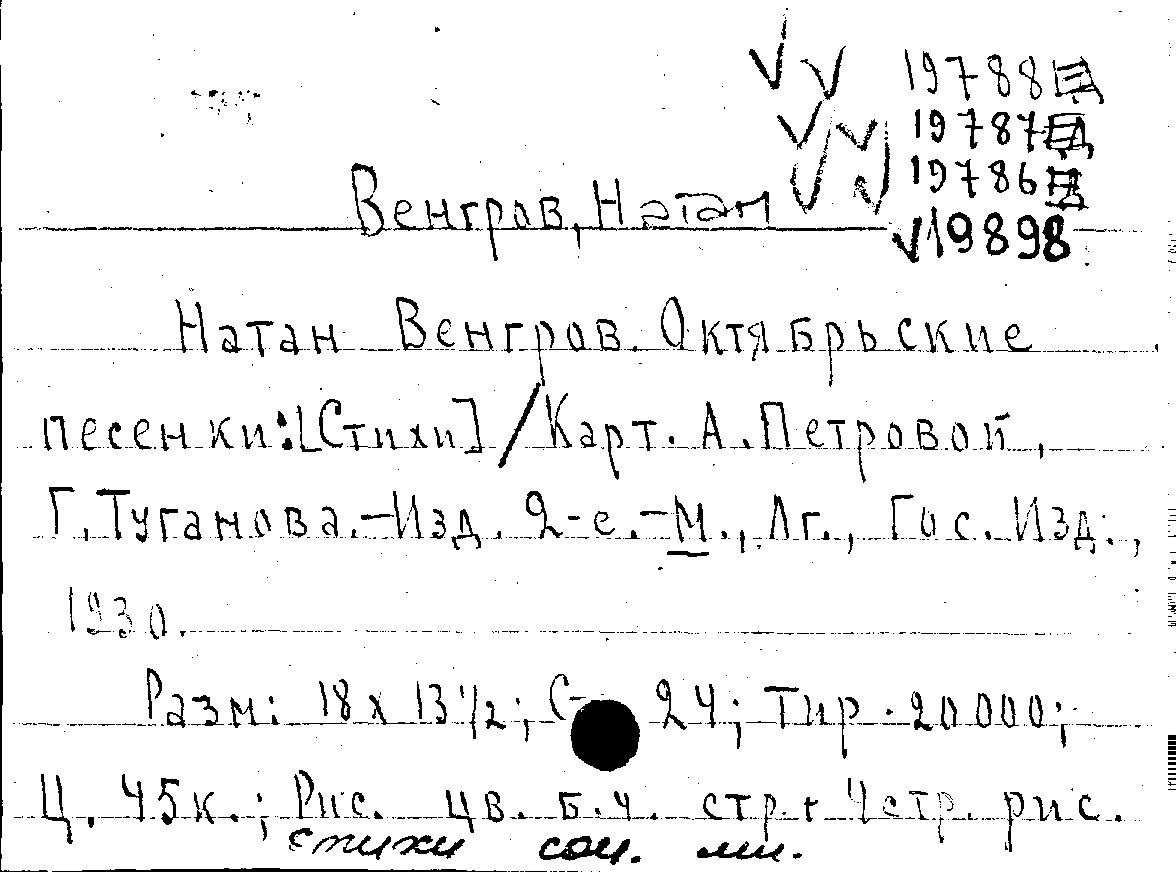 19788
19787
19786
19898
Венгров, Натан
Натан Венгров. Октябрьские
песенки: [Стихи] / Карт. А. Петровой,
Г. Туганова. – Изд. 2-е. – М., Лг., Гос. Изд.,
1930.
Разм: 18 х 13 1/2; С 24; Тир. 20000;
Ц. 45к.; Рис. цв. б.ч. стр. + 4 стр. рис.
стихи соч. мл.